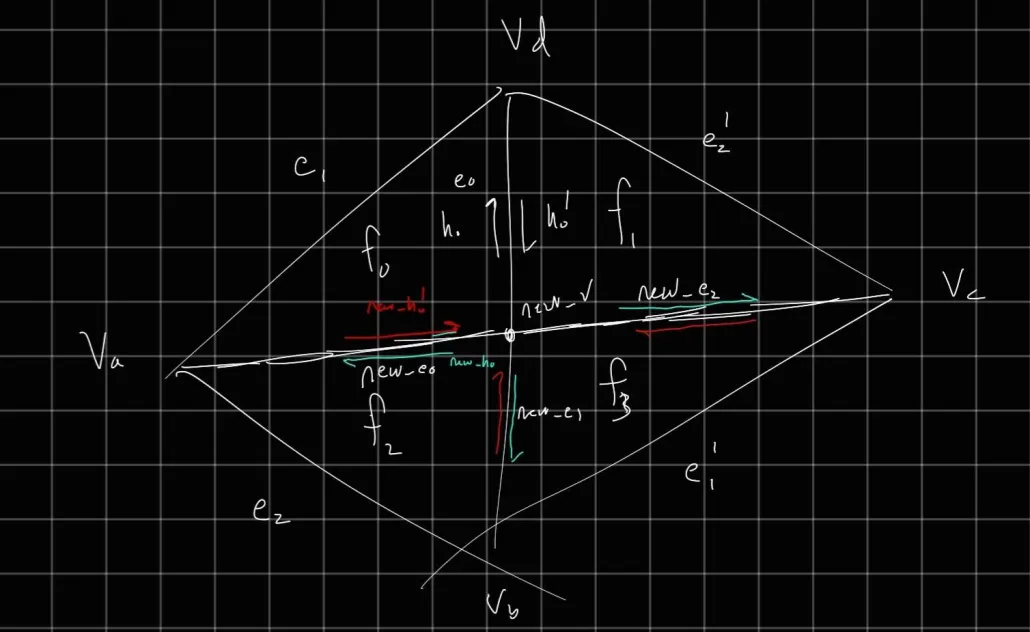 Vd
e₂'
e₁
e₀
h₀ h₀' f₁
f₀
new_h₀' new_v new_e₂ Vc
Va
new_e₀ new_h₀ f₃
f₂ new_e₁
e₁'
e₂
Vb